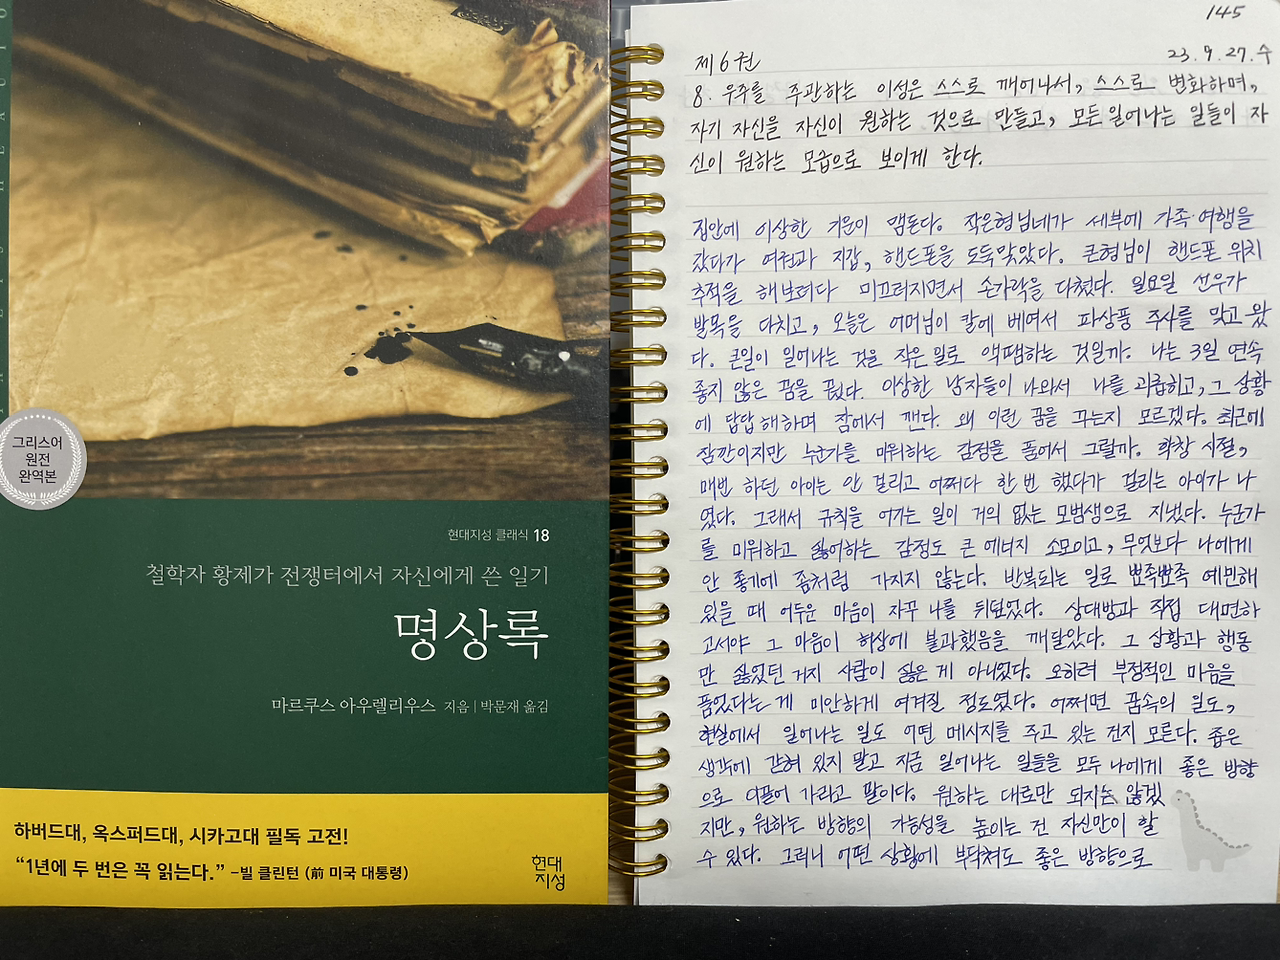 그리스어
원전
완역본
현대지성 클래식 18
철학자 황제가 전쟁터에서 자신에게 쓴 일기
명상록
마르쿠스 아우렐리우스 지음 | 박문재 옮김
하버드대, 옥스퍼드대, 시카고대 필독 고전!
“1년에 두 번은 꼭 읽는다.” –빌 클린턴 (前 미국 대통령)
현대
지성
145
제6권 23. 9. 27. 수
8. 우주를 주관하는 이성은 스스로 깨어나서, 스스로 변화하며,
자기 자신을 자신이 원하는 것으로 만들고, 모든 일어나는 일들이 자
신이 원하는 모습으로 보이게 한다.
집안에 이상한 기운이 맴돈다. 작은형님네가 세부에 가족 여행을
갔다가 여권과 지갑, 핸드폰을 도둑맞았다. 큰형님이 핸드폰 위치
추적을 해보려다 미끄러지면서 손가락을 다쳤다. 일요일 선우가
발목을 다치고, 오늘은 어머님이 칼에 베여서 파상풍 주사를 맞고 왔
다. 큰일이 일어나는 것을 작은 일로 액땜하는 것일까. 나는 3일 연속
좋지 않은 꿈을 꿨다. 이상한 남자들이 나와서 나를 괴롭히고, 그 상황
에 답답해하며 잠에서 깬다. 왜 이런 꿈을 꾸는지 모르겠다. 최근에
잠깐이지만 누군가를 미워하는 감정을 품어서 그럴까. 학창 시절,
매번 하던 아이는 안 걸리고 어쩌다 한 번 했다가 걸리는 아이가 나
였다. 그래서 규칙을 어기는 일이 거의 없는 모범생으로 지냈다. 누군가
를 미워하고 싫어하는 감정도 큰 에너지 소모이고, 무엇보다 나에게
안 좋기에 좀처럼 가지지 않는다. 반복되는 일로 뾰족뾰족 예민해
있을 때 어두운 마음이 자꾸 나를 뒤덮었다. 상대방과 직접 대면하
고서야 그 마음이 허상에 불과했음을 깨달았다. 그 상황과 행동
만 싫었던 거지 사람이 싫은 게 아니었다. 오히려 부정적인 마음을
품었다는 게 미안하게 여겨질 정도였다. 어쩌면 꿈속의 일도,
현실에서 일어나는 일도 어떤 메시지를 주고 있는 건지 모른다. 좁은
생각에 갇혀 있지 말고 지금 일어나는 일들을 모두 나에게 좋은 방향
으로 이끌어 가라고 말이다. 원하는 대로만 되지는 않겠
지만, 원하는 방향의 가능성을 높이는 건 자신만이 할
수 있다. 그러니 어떤 상황에 부닥쳐도 좋은 방향으로